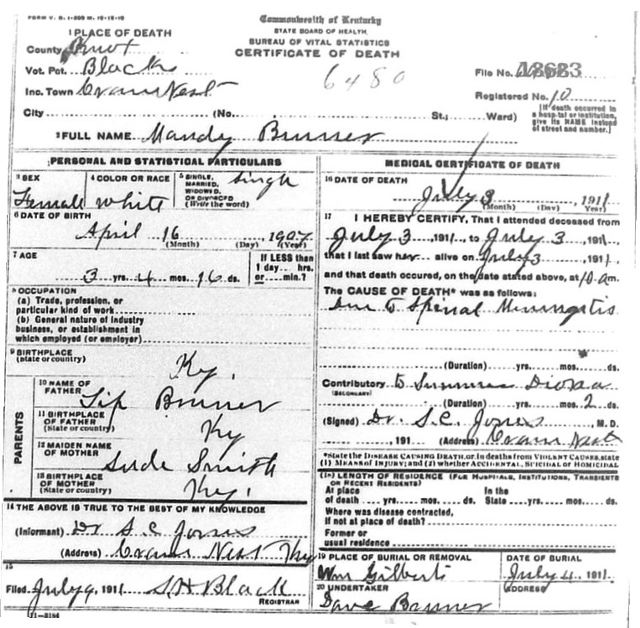 FORM V. S. 1-
Commonwealth of Kentucky
STATE BOARD OF HEALTH
BUREAU OF VITAL STATISTICS
CERTIFICATE OF DEATH
1 PLACE OF DEATH
County Knox
Vot. Pct. Black
Inc. Town Crane Nest
6480
File No. 18683
Registered No. 10
City (No. St.; Ward)
[If death occurred in a hospital or institution, give its NAME instead of street and number.]
2 FULL NAME Mandy Bruner
PERSONAL AND STATISTICAL PARTICULARS
3 SEX
Female
4 COLOR OR RACE
White
5 SINGLE, MARRIED, WIDOWED, OR DIVORCED (Write the word)
Single
6 DATE OF BIRTH
April 16 1907
(Month) (Day) (Year)
7 AGE
3 yrs. 4 mos. 16 ds.
If LESS than 1 day hrs. or min.?
8 OCCUPATION
(a) Trade, profession, or particular kind of work
(b) General nature of industry business, or establishment in which employed (or employer)
9 BIRTHPLACE
(State or country) Ky.
PARENTS
10 NAME OF FATHER
Bruner
11 BIRTHPLACE OF FATHER
(State or country) Ky
12 MAIDEN NAME OF MOTHER
Sude Smith
13 BIRTHPLACE OF MOTHER
(State or country) Ky.
14 THE ABOVE IS TRUE TO THE BEST OF MY KNOWLEDGE
(Informant) Dr S C Jones
(Address) Crane Nest Ky
15
Filed July 9, 1911 S.H Black
REGISTRAR
MEDICAL CERTIFICATE OF DEATH
16 DATE OF DEATH
July 3 1911
(Month) (Day) (Year)
17 I HEREBY CERTIFY, That I attended deceased from
July 3, 1911, to July 3, 1911,
that I last saw her alive on July 3, 1911
and that death occured, on the date stated above, at 10 a m.
The CAUSE OF DEATH* was as follows:
Due to Spinal Miningitis
(Duration) yrs. mos. ds.
Contributory to Summer
(SECONDARY)
(Duration) yrs. mos. 2 ds.
(Signed) Dr. S.C. Jones M. D.
, 191 (Address) Crane Nest
*State the DISEASE CAUSING DEATH, or in deaths from VIOLENT CAUSES, state (1) MEANS OF INJURY; and (2) whether ACCIDENTAL, SUICIDAL or HOMICIDAL
LENGTH OF RESIDENCE (FOR HOSPITALS, INSTITUTIONS, TRANSIENTS OR RECENT RESIDENTS)
At place of death yrs. mos. ds. In the State yrs. mos. ds.
Where was disease contracted,
If not at place of death?
Former or
usual residence
19 PLACE OF BURIAL OR REMOVAL
Wm Gilbert
DATE OF BURIAL
July 4 1911.
20 UNDERTAKER
Dave Bruner
ADDRESS
11-3184